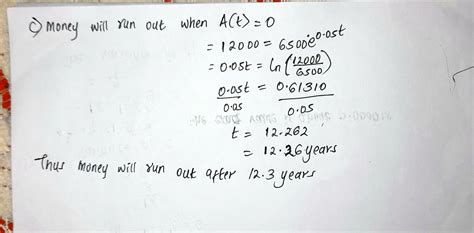 c) Money will run out when A(t) = 0
= 12000 = 6500e^0.05t
= 0.05t = ln(12000/6500)
0.05t/0.05 = 0.61310/0.05
t = 12.262
= 12.26 years
Thus money will run out after 12.3 years